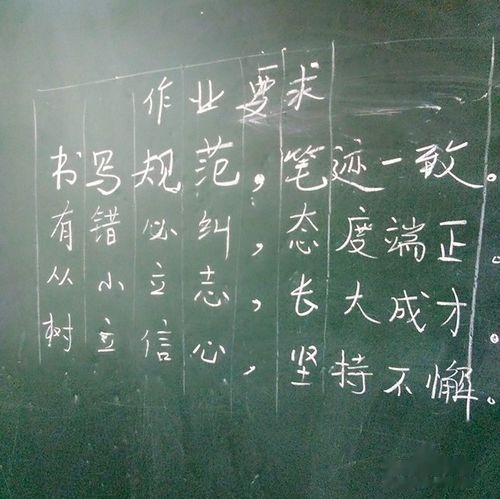 作业要求
书写规范，笔迹一致。
有错必纠，态度端正。
从小立志，长大成才。
树立信心，坚持不懈。